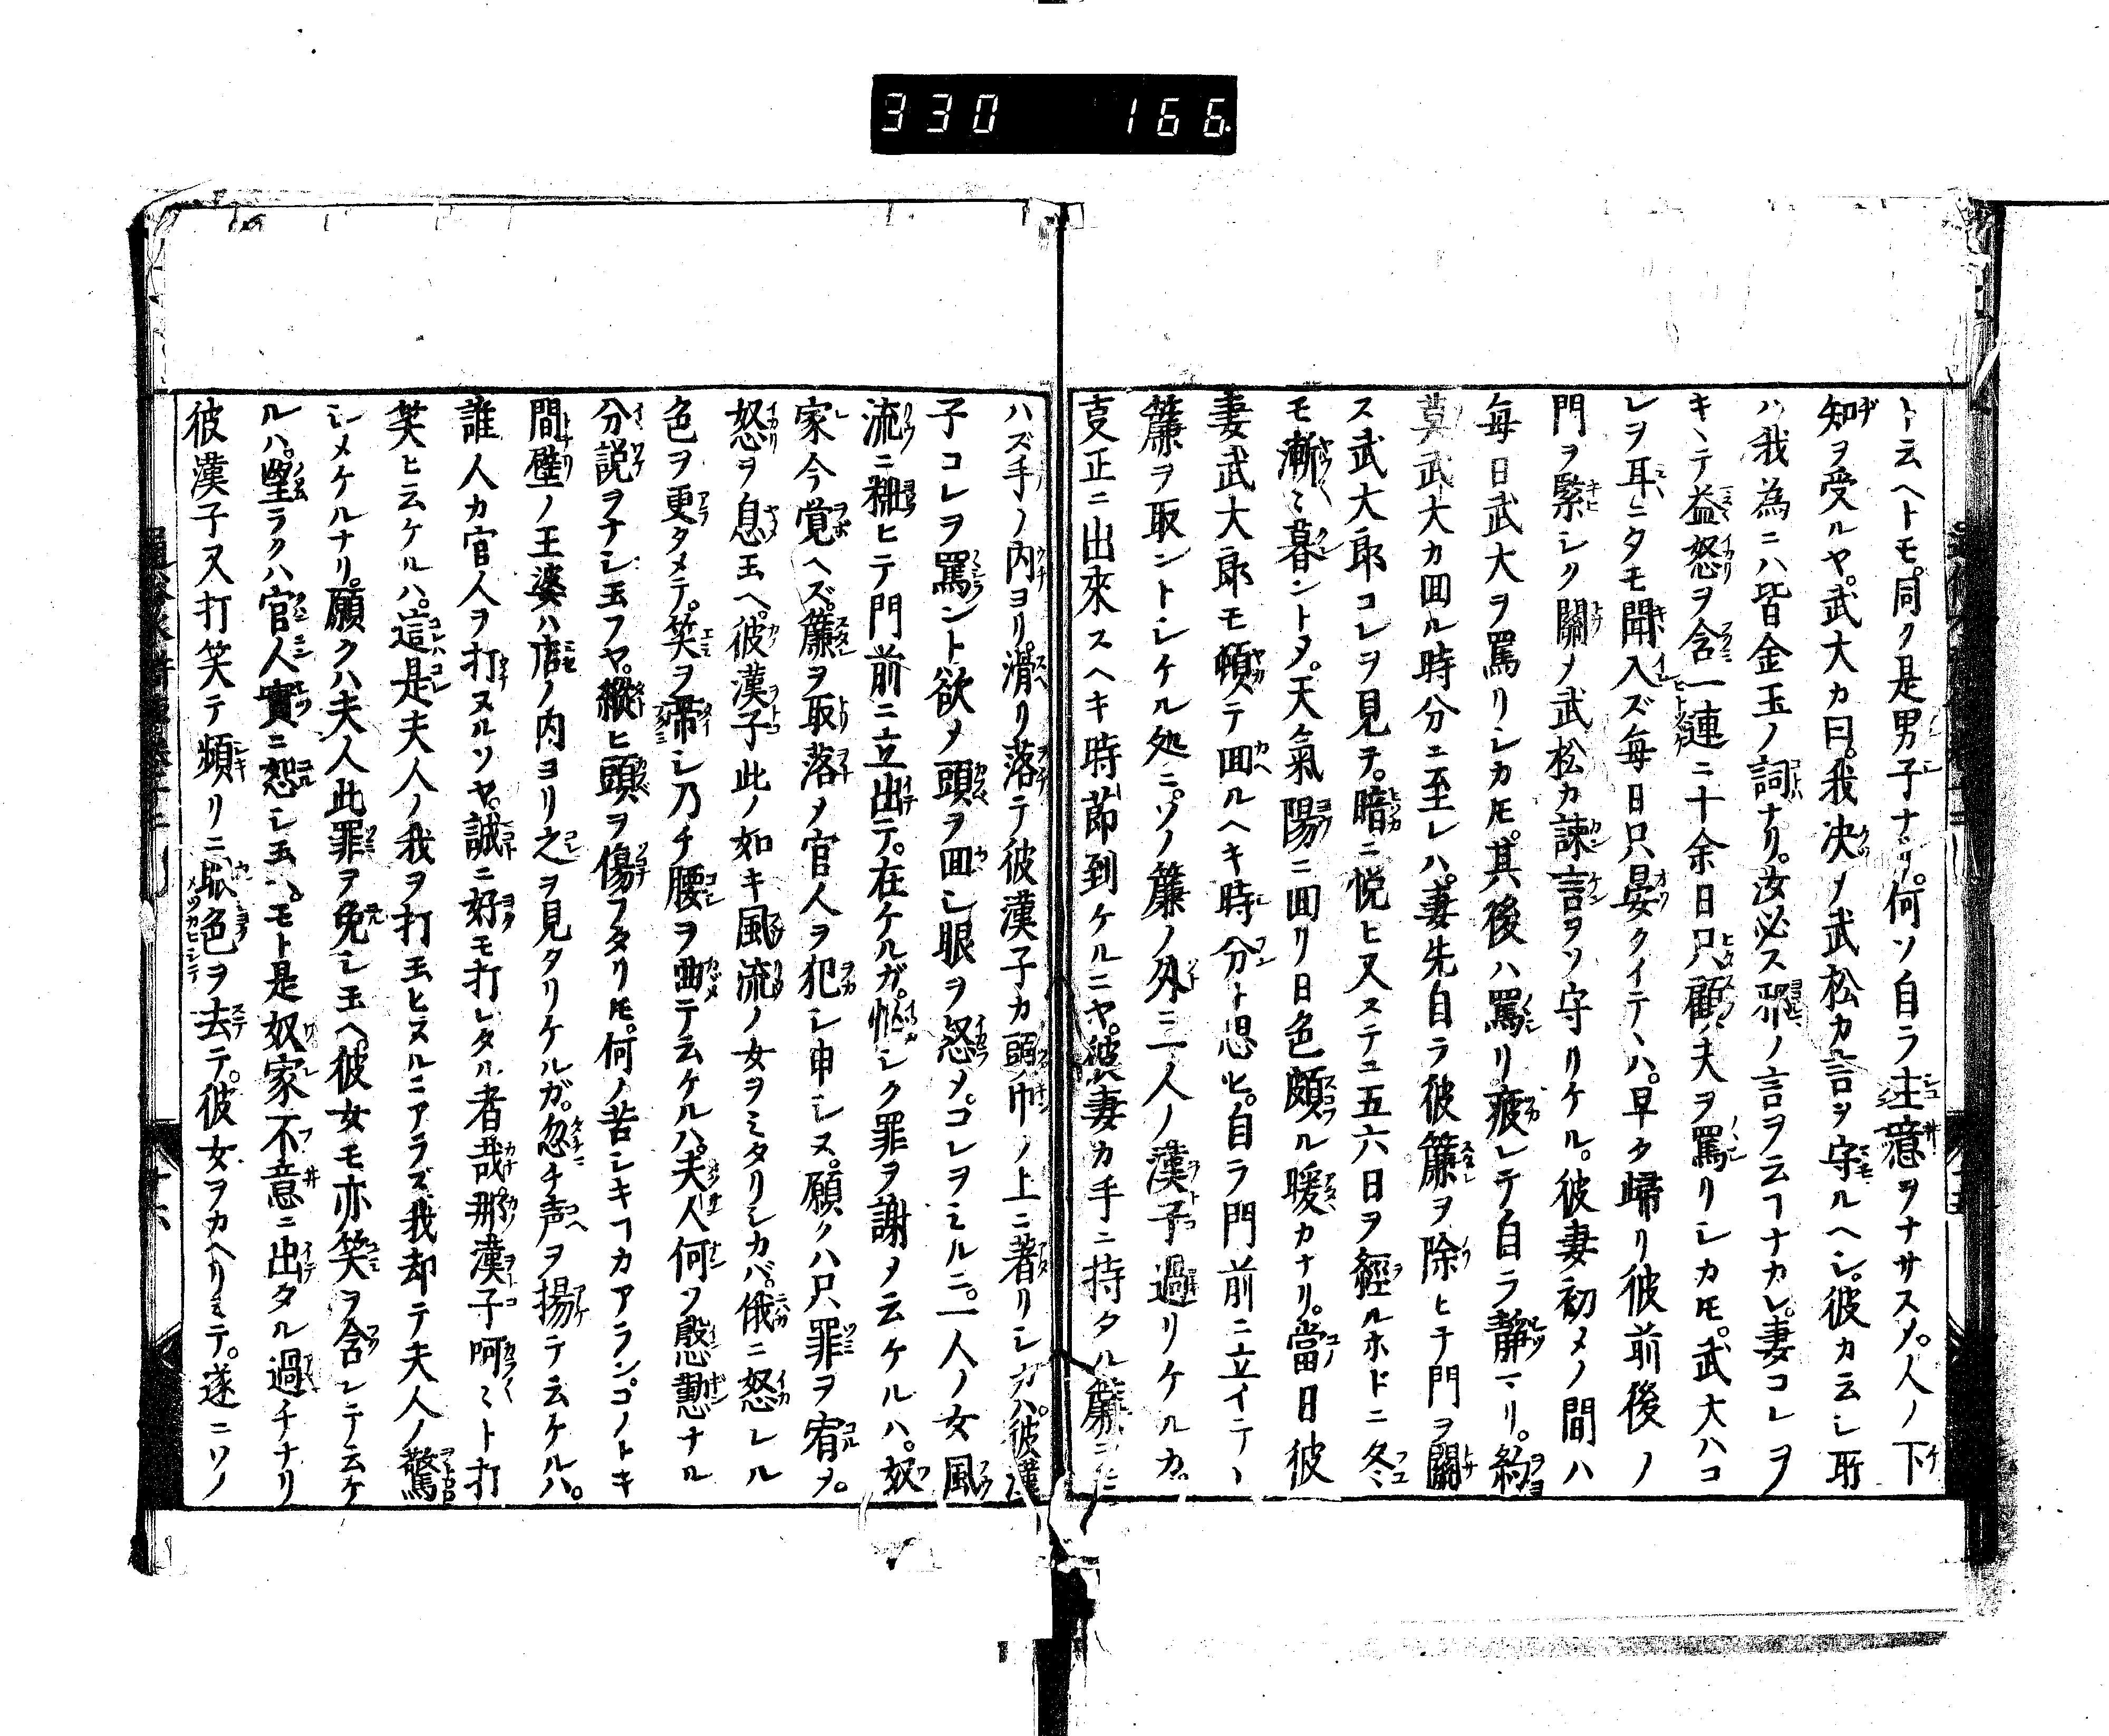 330 166
ト云ヘトモ。同ク是男子ナリ。何ソ自ラ主意ヲナサスメ。人ノ下
知ヲ受ルヤ。武大カ曰。我决メ武松カ言ヲ守ルヘシ。彼カ云シ所
ハ我為ニハ皆金玉ノ詞ナリ。汝必ス邪ノ言ヲ云フナカレ。妻コレヲ
キヽテ益怒ヲ含一連ニ十余日只顧ノ夫ヲ罵リシカ𪜈。武大ハコ
レヲ耳ニタモ聞入ズ毎日只晏クイテヽハ。早夕歸リ彼前後ノ
門ヲ緊シク關メ武松カ諫言ヲソ守リケル。彼妻初メノ間ハ
毎日武大ヲ罵リシカ𪜈。其後ハ罵リ疲レテ自ラ静マリ。約
莫武大カ囬ル時分ニ至レハ。妻先自ラ彼簾ヲ除ヒテ門ヲ關
ス武大郎コレヲ見テ。暗ニ悦ヒ又ステニ五六日ヲ經ルホドニ冬
モ漸ミ暮ントメ。天氣陽ニ囬リ日色頗ル暖カナリ。當日彼
妻武大郎モ頓テ囬ルヘキ時分ト思ヒ。自ラ門前ニ立イテヽ
簾ヲ取ントシケル処ニ。ソノ簾ノ外ニ一人ノ漢子過リケルカ。
支正ニ出來スヘキ時節到ケルニヤ。彼妻カ手ニ持タル簾
ハズ手ノ内ヨリ。滑リ落テ彼漢子カ頭巾ノ上ニ著リシカハ。彼漢
子コレヲ罵ント欲メ頭ヲ囬シ眼ヲ怒メ。コレヲミルニ。一人ノ女風
流ニ粧ヒテ門前ニ立出テ。在ケルガ。忙シク罪ヲ謝メ云ケルハ。奴
家今覚ヘズ。簾ヲ取落メ官人ヲ犯シ申シヌ。願クハ只罪ヲ宥メ。
怒ヲ息玉ヘ。彼漢子此ノ如キ風流ノ女ヲミタリシカバ。俄ニ怒レル
色ヲ更タメテ。笑ヲ帯シ乃チ腰ヲ曲テ云ケルハ。夫人何ソ慇懃ナル
分説ヲナシ玉フヤ。縱ヒ頭ヲ傷フタリ𪜈。何ノ苦シキヿカアラン。コノトキ
間壁ノ王婆ハ店ノ内ヨリ之ヲ見タリケルガ。忽チ声ヲ揚テ云ケルハ。
誰人カ官人ヲ打ヌルソヤ。誠ニ好モ打レタル者哉那漢子呵ミト打
笑ヒ云ケルハ。這是夫人ノ我ヲ打玉ヒヌルニアラズ我却テ夫人ノ驚
シメケルナリ。願クハ夫人此罪ヲ免シ玉ヘ。彼女モ亦笑ヲ含シテ云ケ
ルハ。望ラクハ官人實ニ恕シ玉ハ。モト是奴家不意ニ出タル過チナリ
彼漢子又打笑テ頻リニ眼色ヲ去テ。彼女ヲカヘリミテ。遂ニソノ